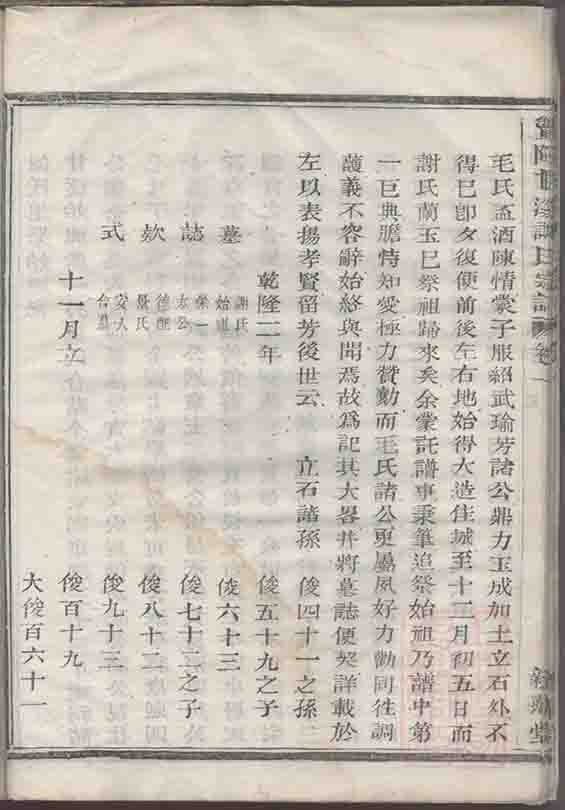 毛氏孟酒陳情蒙子服紹武瑜芳諸公鼎力玉成加土立石外不
得已卽夕復便前後左右地始得大造佳城至十二月初五日而
謝氏蘭玉已祭祖歸來矣余蒙託譜事秉筆追祭始祖乃譜中第
一巨典膽恃知愛極力贊勷而毛氏諸公更屬夙好力勸同往調
護義不容辭始終與聞焉故爲記其大畧并將墓誌便契詳載於
左以表揚孝賢留芳後世云 立石諸孫 俊四十一之孫
乾隆二年 俊五十九之子
墓 謝氏始 俊六十三
誌 榮一太公 俊七十二之子
欵 德配 氏 俊八十二
式 安人合墓 俊九十三
十一月立 俊百十九
大俊百六十一
谿謝氏宗譜 卷一
堂